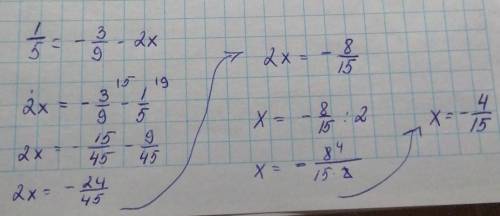 1/5 = - 3/9 - 2x
2x = - 3/9 ¹⁵ - 1/5 ¹⁹
2x = - 15/45 - 9/45
2x = - 24/45
2x = - 8/15
x = - 8/15 : 2
x = - 8⁴/15·2
x = - 4/15